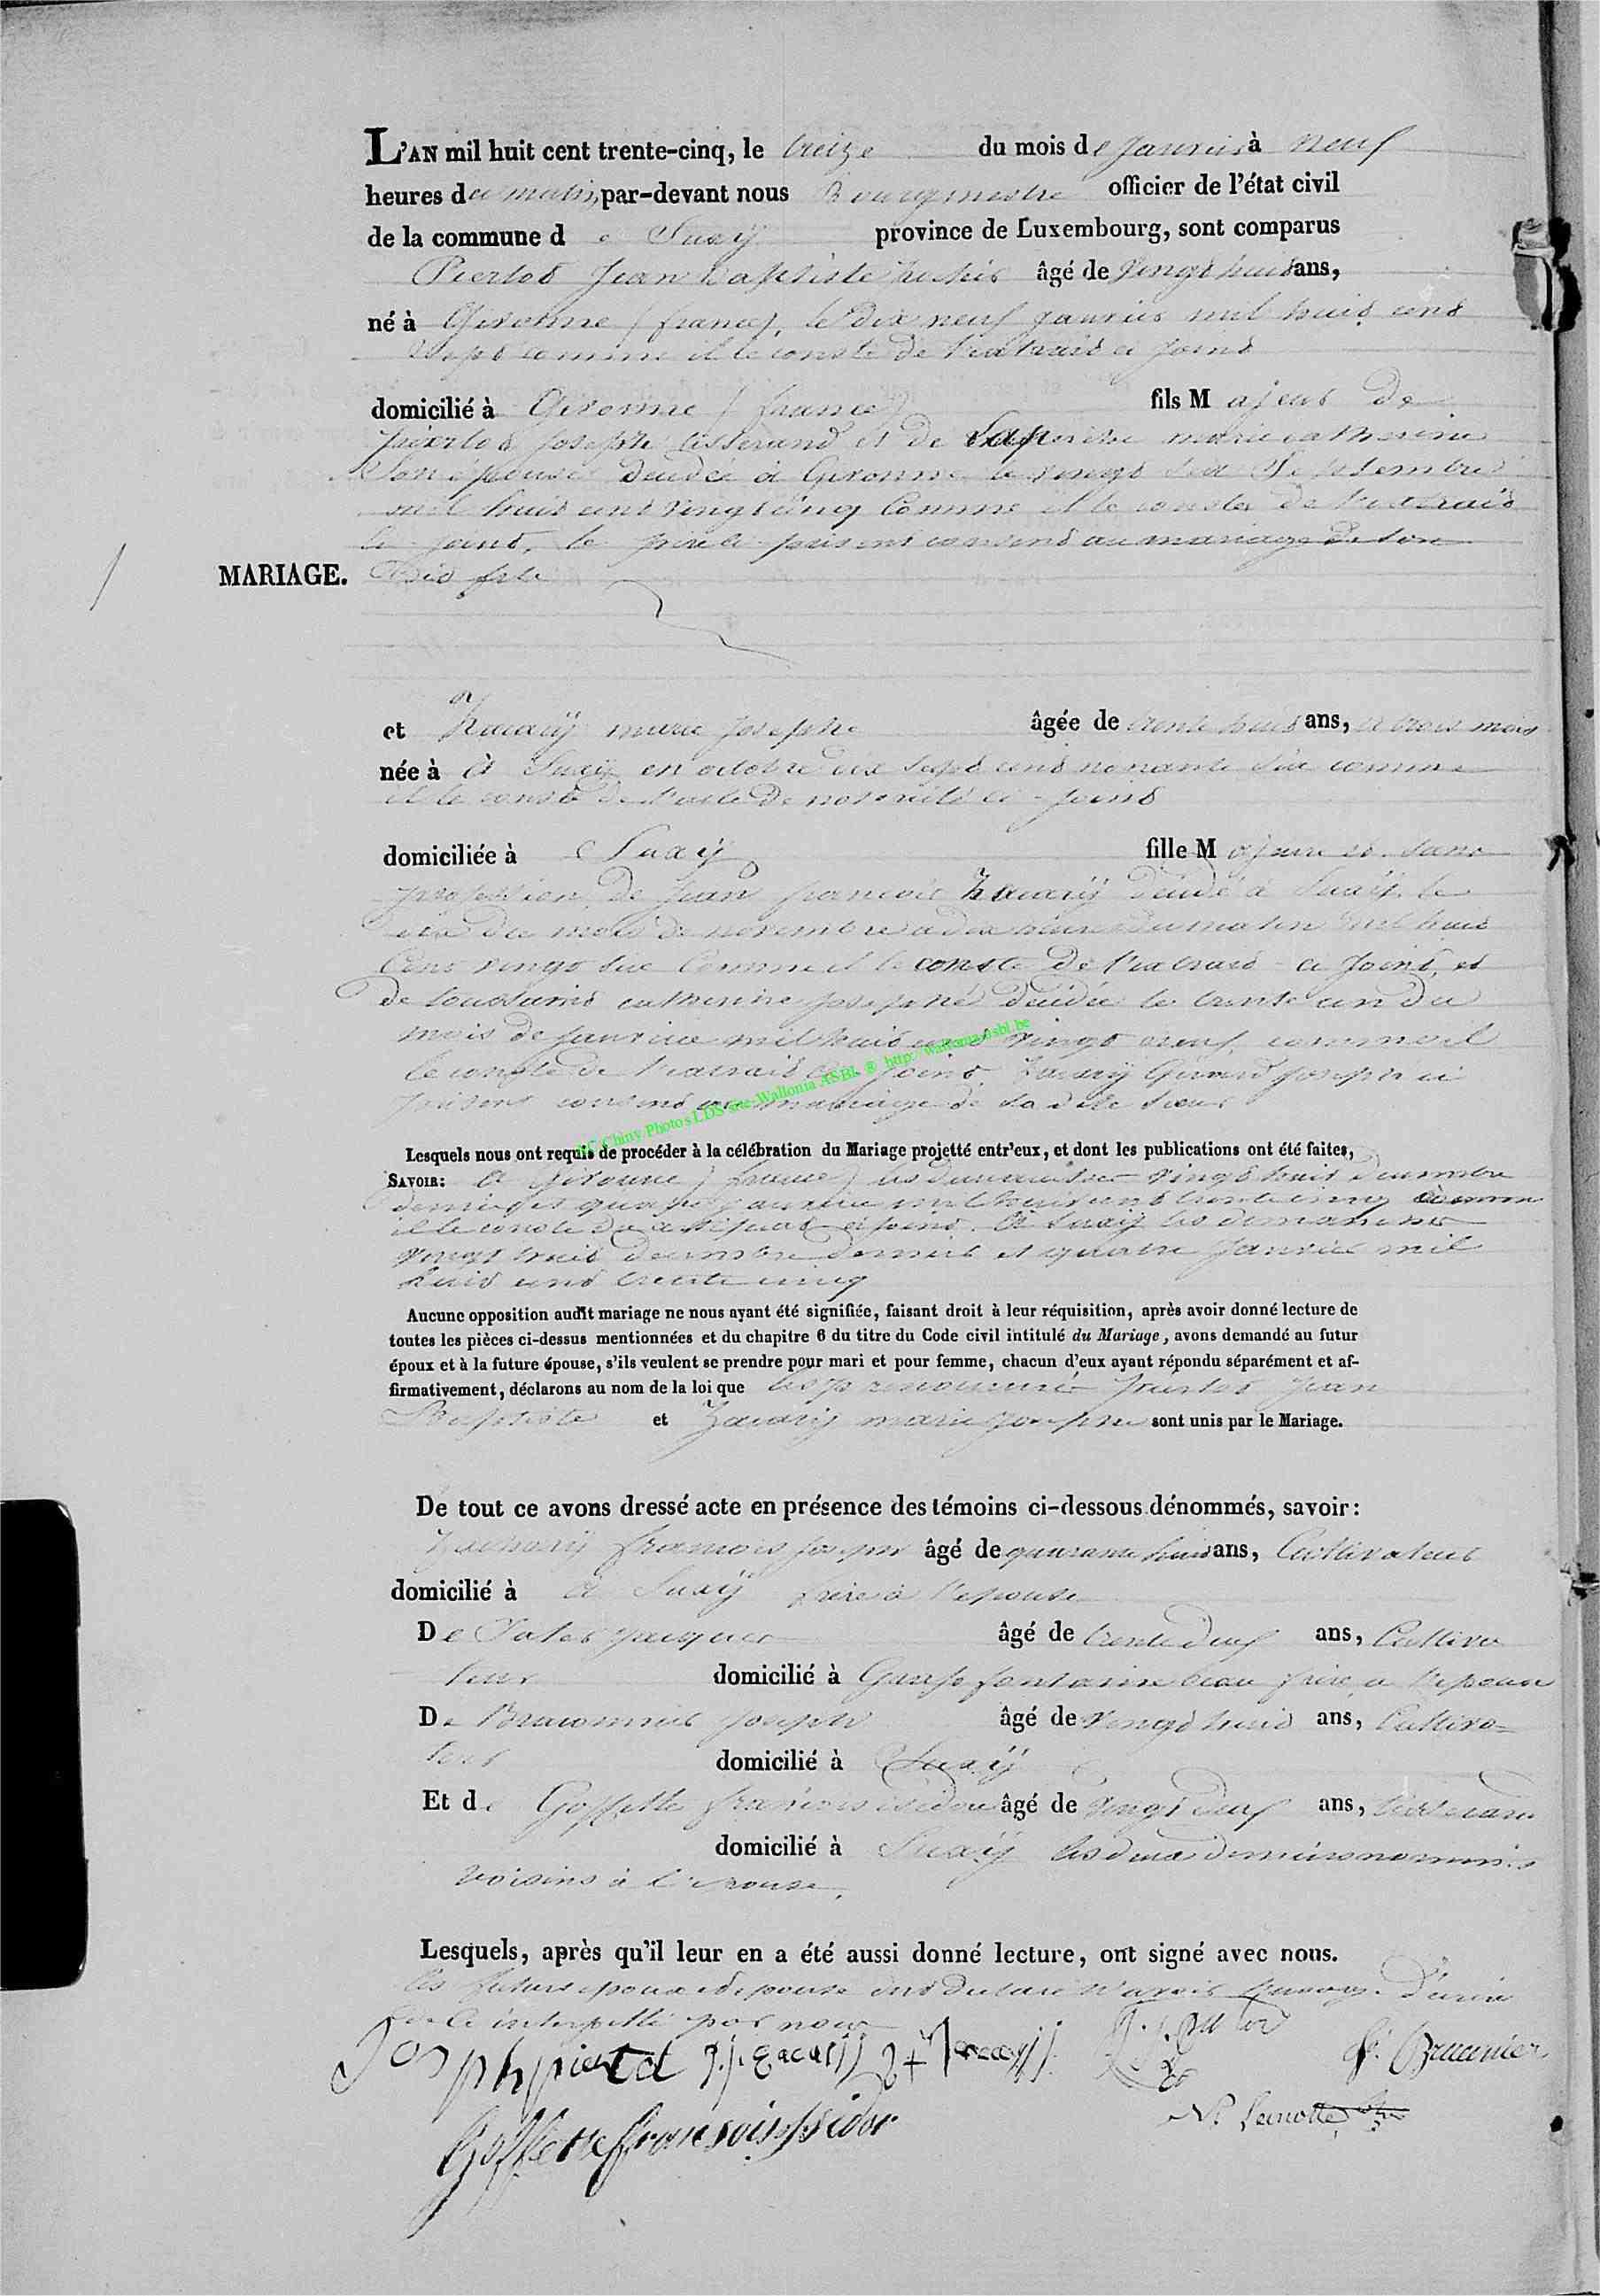 L'AN mil huit cent trente-cinq, le treize du mois de janvier à neuf
heures du matin, par-devant nous Bourgmestre officier de l'état civil
de la commune de Suxÿ province de Luxembourg, sont comparus
Pierlot Jean Baptiste âgé de vingt huit ans,
né à Gironne (france), le dix neuf janvier mil huit cent
sept comme il le conste de l'extrait ci joint
domicilié à Gironne (france) fils Majeur de
pierlot joseph tisserand et de marie catherine
son epouse décédée à Gironne le vingt six septembre
mil huit cent vingt cinq Comme il le conste de l'extrait
ci joint, le père ci présent consent au mariage de son
MARIAGE. dit fils
et Zacarÿ marie josephe âgée de trente huit ans, et trois mois
née à à Suxÿ en octobre dix sept cent nonante six comme
il le conste de l'acte de notoriété ci-joint
domiciliée à Suxÿ fille Majeure et sans
profession de jean francois Zacarÿ décédé à Suxÿ le
dix du mois de novembre à dix heures du matin mil huit
Cent vingt six Comme il le conste de l'extrait ci joint, et
de toussaint catherine josephe décédée le trente un du
mois de janvier mil huit cent vingt neuf, comme il
le conste de l'extrait ci joint Zacarÿ Gérard joseph ci
présent consent au mariage de sa dite sœur
AC Chiny Photos LDS site Wallonia ASBL ® http://wallonia-asbl.be
Lesquels nous ont requis de procéder à la célébration du Mariage projetté entr'eux, et dont les publications ont été faites,
SAVOIR: à Gironne (france) les dimanches vingt huit decembre
dernier et quatre janvier mil huit cent trente cinq comme
il le conste du certificat ci joint. à Suxÿ les dimanches
vingt huit decembre dernier et quatre janvier mil
huit cent trente cinq
Aucune opposition audit mariage ne nous ayant été signifiée, faisant droit à leur réquisition, après avoir donné lecture de
toutes les pièces ci-dessus mentionnées et du chapitre 6 du titre du Code civil intitulé du Mariage, avons demandé au futur
époux et à la future épouse, s'ils veulent se prendre pour mari et pour femme, chacun d'eux ayant répondu séparément et af-
firmativement, déclarons au nom de la loi que les prénommés pierlot jean
Baptiste et Zacarÿ marie josephe sont unis par le Mariage.
De tout ce avons dressé acte en présence des témoins ci-dessous dénommés, savoir:
Zacharÿ francois joseph âgé de quarante huit ans, Cultivateur
domicilié à à Suxÿ frère à l'epouse
De jacques âgé de trente deux ans, Cultiva
teur domicilié à fontaine beau frère à l'epouse
De Braconnier joseph âgé de vingt huit ans, Cultiva=
teur domicilié à Suxÿ
Et de Goffette francois isidore âgé de vingt deux ans, tisserand
domicilié à Suxÿ les deux derniers nommés
voisins à l'epouse.
Lesquels, après qu'il leur en a été aussi donné lecture, ont signé avec nous.
les future epoux et epouse ont déclaré n'avoir l'usage d'écrire
de ce interpellé par nous
Josph pierlot g. j. Zacarÿ
Goffette fransois issidor